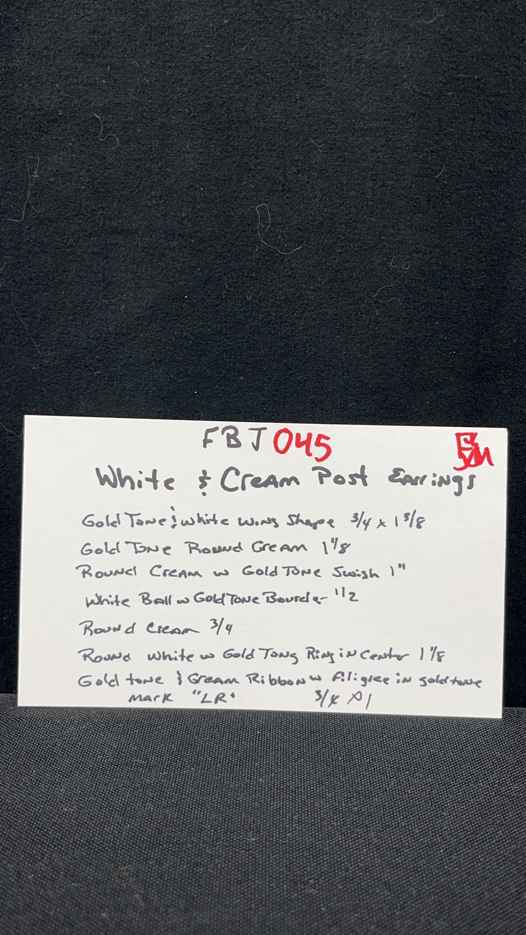 FBJ 045
White & Cream Post Earrings
Gold Tone & White Wing Shape 3/4 x 1 5/8
Gold Tone Round Cream 1 1/8
Round Cream w Gold Tone Swish 1"
White Ball w Gold Tone Bourder 1/2
Round Cream 3/4
Round White w Gold Tong Ring in Center 1 1/8
Gold tone & Cream Ribbon w Filigree in gold tone
mark "LR" 3/4 x 1